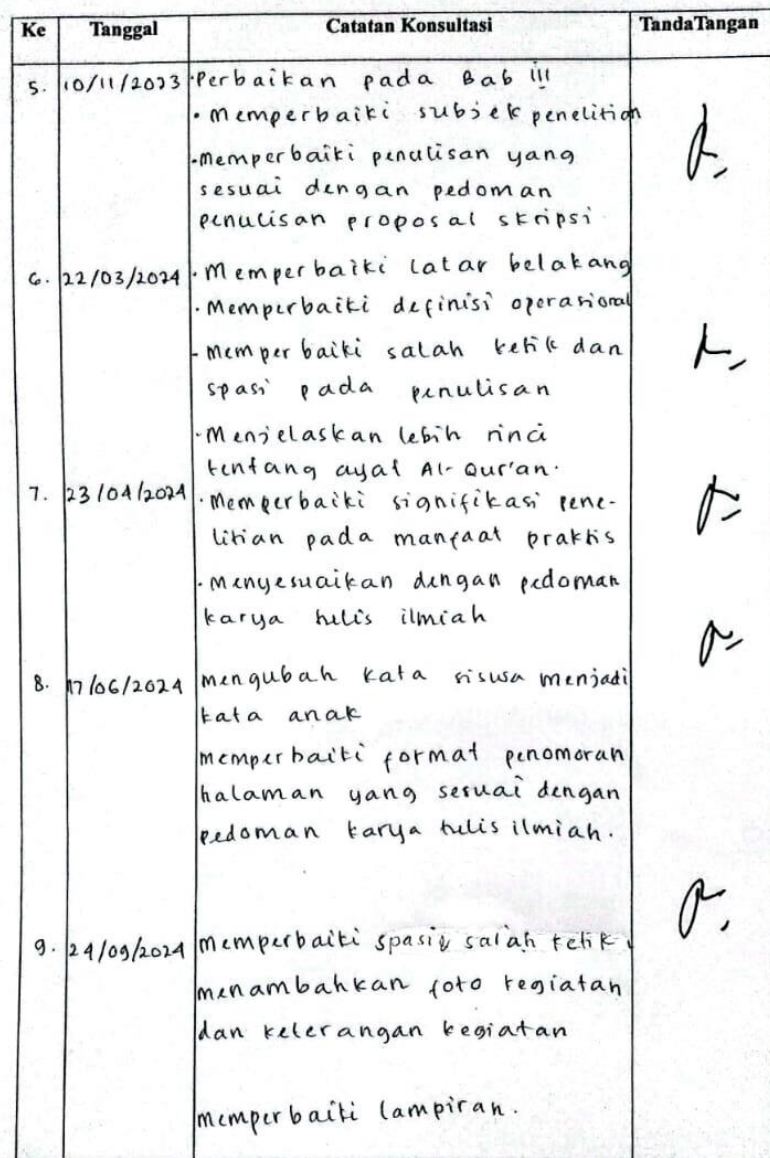 Ke Tanggal Catatan Konsultasi TandaTangan
5. 10/11/2023 · Perbaikan pada Bab III
· Memperbaiki subjek penelitian
· Memperbaiki penulisan yang
sesuai dengan pedoman
penulisan proposal skripsi.
6. 22/03/2024 · Memperbaiki latar belakang
· Memperbaiki definisi operasional
- Memperbaiki salah ketik dan
spasi pada penulisan
· Menjelaskan lebih rinci
tentang ayat Al-Qur'an.
7. 23/04/2024 · Memperbaiki signifikasi pene-
litian pada manfaat praktis
· Menyesuaikan dengan pedoman
karya tulis ilmiah
8. 17/06/2024 mengubah kata siswa menjadi
kata anak
memperbaiki format penomoran
halaman yang sesuai dengan
pedoman karya tulis ilmiah.
9. 24/09/2024 memperbaiki spasi, salah ketik,
menambahkan foto kegiatan
dan keterangan kegiatan
memperbaiki lampiran.